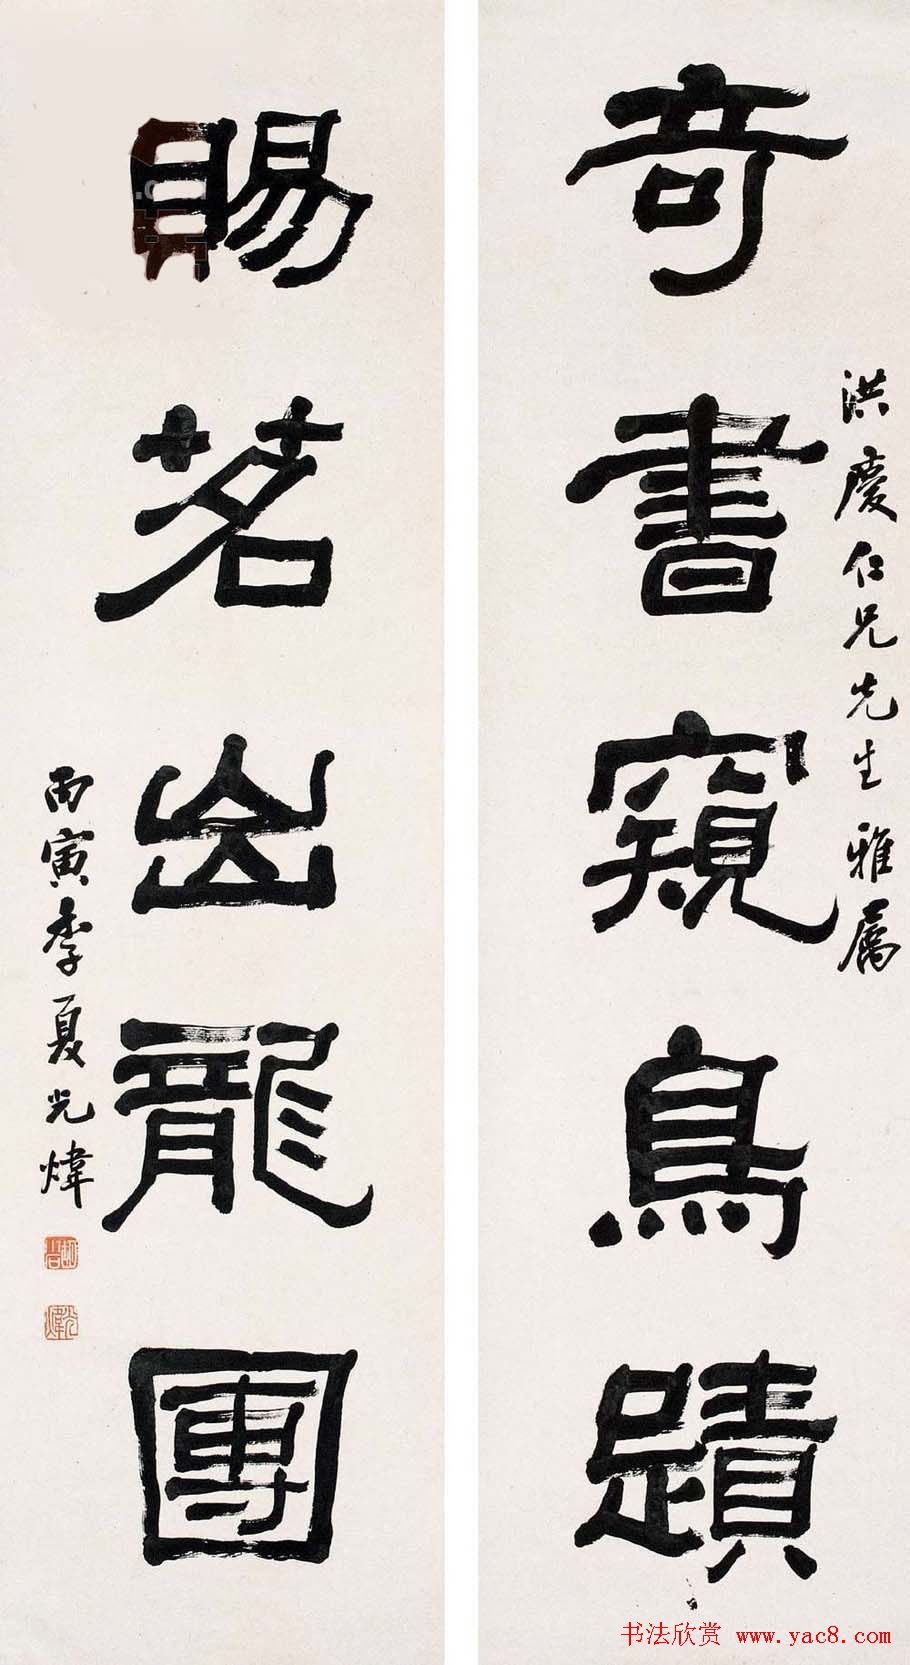 洪慶仁兄先生雅屬
奇書窺鳥蹟
賜茗出龍團
丙寅季夏光煒
光煒
书法欣赏 www.yac8.com